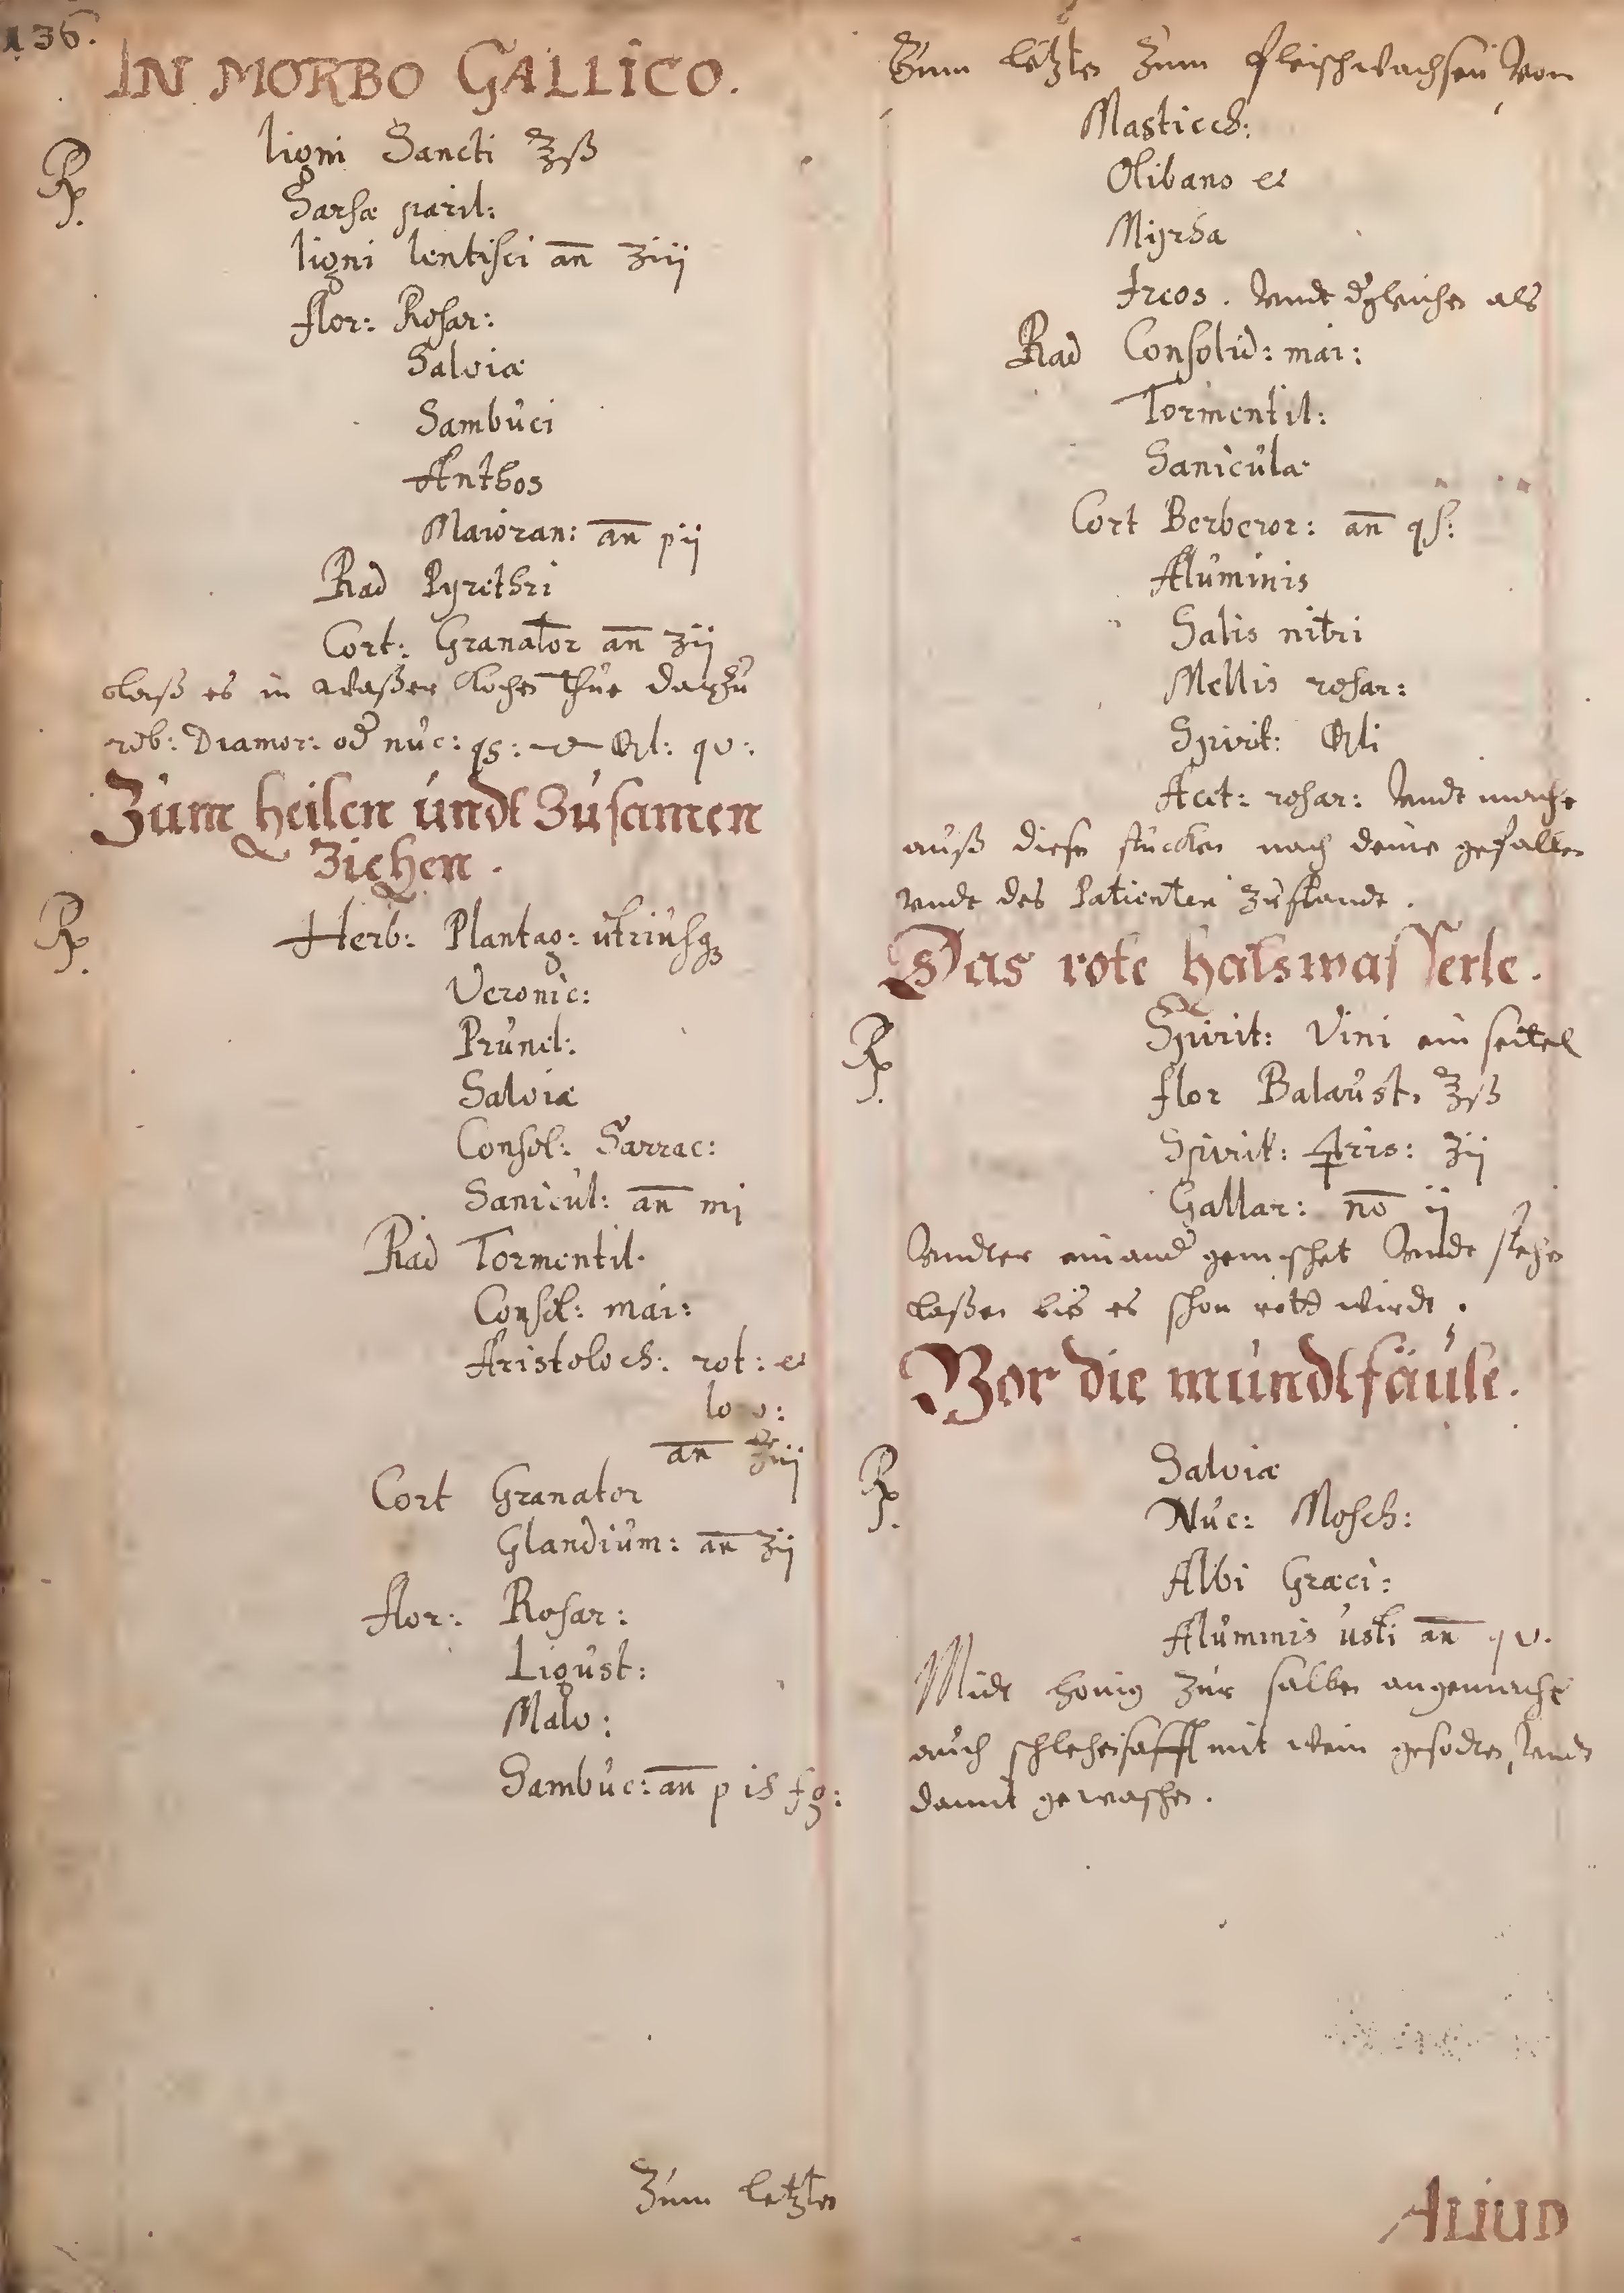 136.
IN MORBO GALLICO.
℞.
ligni Sancti ℥ß
Sarsæ paril:
ligni lentisci an̅ ʒiij
flor: Rosar:
Salviæ
Sambuci
Anthos
Maioran: an̅ pij
Rad Pyrethri
Cort: Granator an̅ ʒij
laß es in waßer kochen thue darzu
rob: Diamor: oder nuc: qs: qv:
Zum heilen undt Zusamen
Ziehen.
℞.
Herb: Plantag: utriusq;
Veronic:
Prunel:
Salviæ
Consol: Sarrac:
Sanicul: an̅ mj
Rad Tormentil.
Consol: mai:
Aristoloch: rot: et
an̅ ʒiij
Cort Granator
Glandium: an̅ ʒij
flor: Rosar:
Ligust:
Malv:
Sambuc: an̅ p
Zum letzten
Zum letzten Zum fleischwachsen von
Masticch:
Olibano et
Myrha
Ireos. vndt dergleichen als
Rad Consolid: mai:
Tormentil:
Saniculæ
Cort Berberor: an̅ qs:
Aluminis
Salis nitri
Mellis rosar:
Spirit: ⊕li
Acet: rosar: vndt mache
auß diesen stucken nach deine gefallen
vndt des Patienten Zustandt.
Das rote halswasserle.
℞.
Spirit: Vini ein seitel
flor Balaust. ℥ß
Spirit: 🜍ris: ʒij
Gallar: no̅ ij
Vndter einander gemischet vndt stehen
laßen bis es schon roth wirdt.
Vor die mundtfäule.
℞.
Salviæ
Nuc: Mosch:
Albi Græci:
Aluminis usti an̅ qv.
Midt honig zur salben angemacht
auch schlehensafft mit wein gesodten, vndt
damit gewaschen.
ALIUD